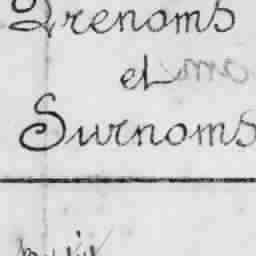 Prenoms
et
Surnoms